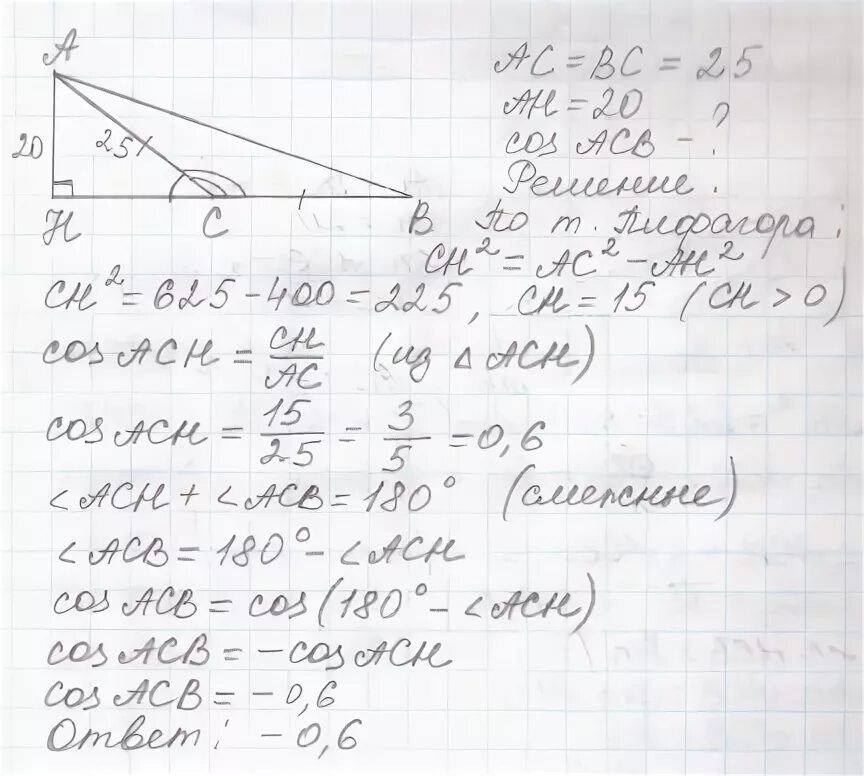 A
20
25
H
C
B
AC = BC = 25
AH = 20
cos ACB - ?
Решение:
По т. Пифагора:
CH² = AC² - AH²
CH² = 625 - 400 = 225, CH = 15 (CH > 0)
cos ACH = CH/AC (из △ ACH)
cos ACH = 15/25 = 3/5 = 0,6
∠ACH + ∠ACB = 180° (смежные)
∠ACB = 180° - ∠ACH
cos ACB = cos(180° - ∠ACH)
cos ACB = -cos ACH
cos ACB = -0,6
Ответ: -0,6